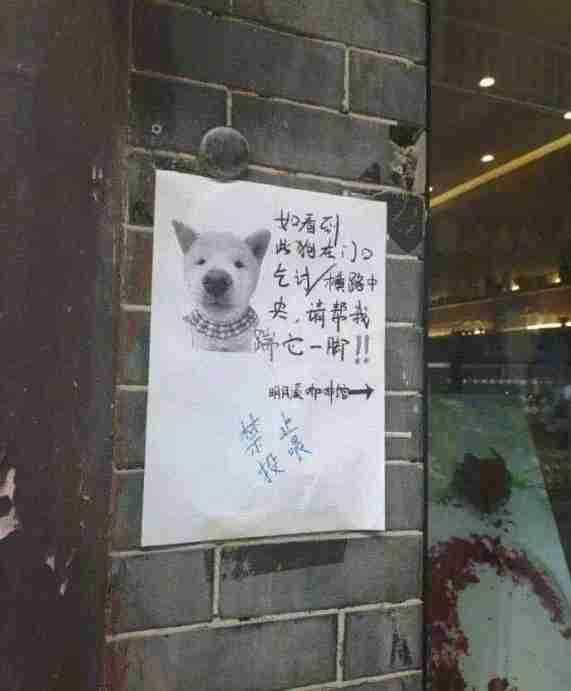 如看到
此狗在门口
乞讨/横路中
央,请帮我
踹它一脚!!
明月裏咖啡馆→
禁止
投喂